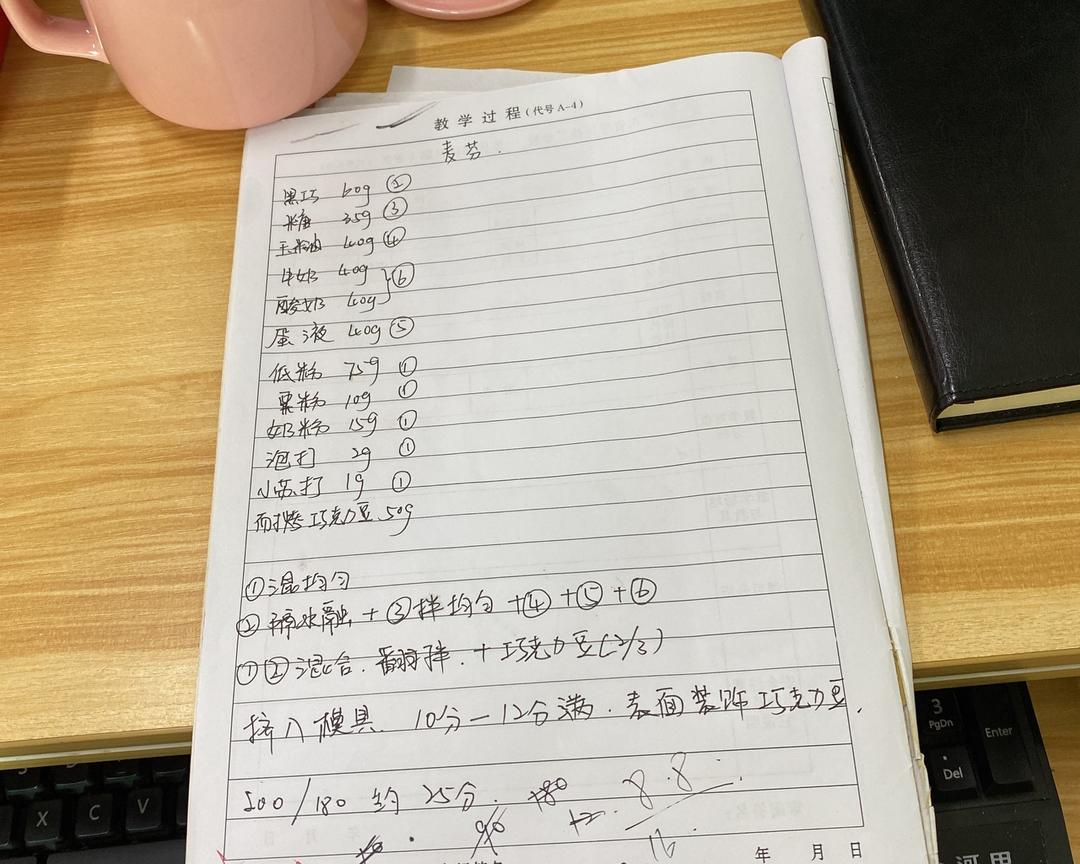 教学过程(代号A-4)
麦芬.
黑巧 60g ②
糖 35g ③
玉米油 40g ④
牛奶 40g
酸奶 40g } ⑥
蛋液 40g ⑤
低粉 75g ①
粟粉 10g ①
奶粉 15g ①
泡打 2g ①
小苏打 1g ①
耐烤巧克力豆 50g
①混均匀
②隔水融 + ③拌均匀 + ④ + ⑤ + ⑥
①②混合.翻拌. + 巧克力豆(2/3)
挤入模具. 10分-12分满.表面装饰巧克力豆.
200/180 约 25分.
8.8
16
年 月 日
3
PgDn
Enter
.
Del
X
C
V